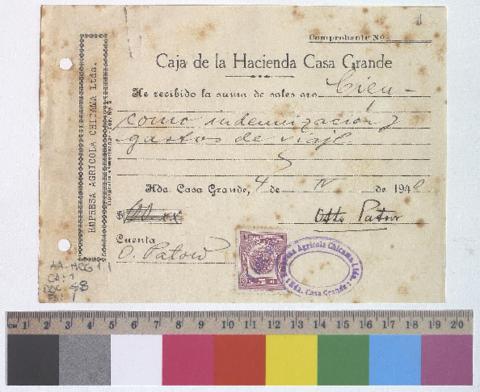 Comprobante No.
Caja de la Hacienda Casa Grande
He recibido la suma de soles oro Cien-
como indemnización y
gastos de viaje
Hda. Casa Grande, 4 de IV de 194
Otto Patow
Cuenta
O. Patow
EMPRESA AGRICOLA CHICAMA Ltda.
Empresa Agrícola Chicama Ltda.
Hda. Casa Grande
AA-HCG
CA:
DOC 48
cm 1 2 3 4 5 6 7 8 9 10 11 12 13 14 15 16 17 18 19 20